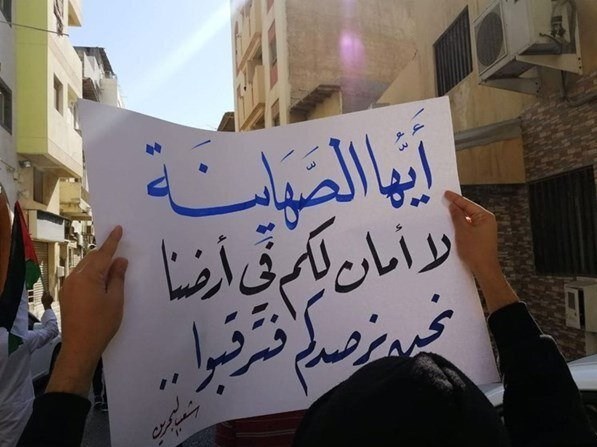 أَيُّها الصَّهَاينَة
لا أمان لكم في أرضنا
نحن نرصدكم فترقبوا ..
شعب البحرين